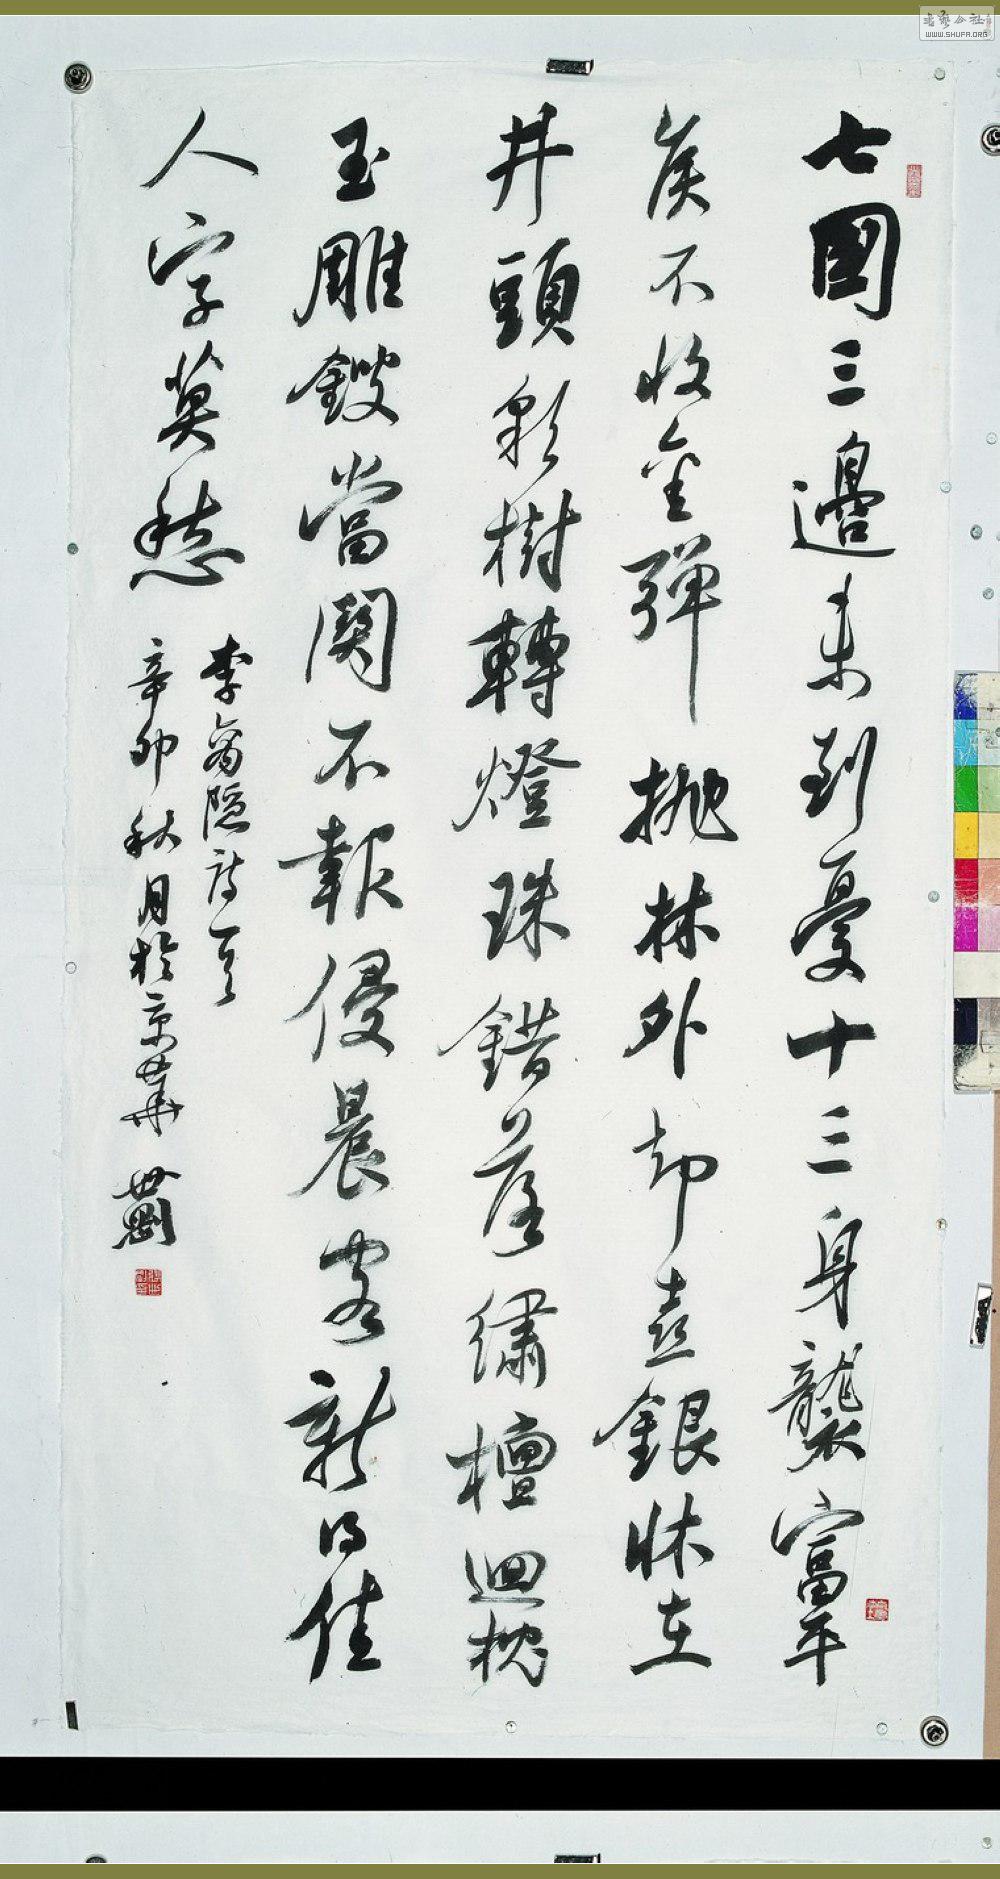 七國三邊未到憂十三身襲富平
矦不收金彈抛林外却喜銀牀在
井頭彩樹轉燈珠錯落繡檀迴枕
玉雕鎪當關不報侵晨客新得佳
人字莫愁
李商隱詩一首
辛卯秋月於京華 世剛
書藝公社
WWW.SHUFA.ORG